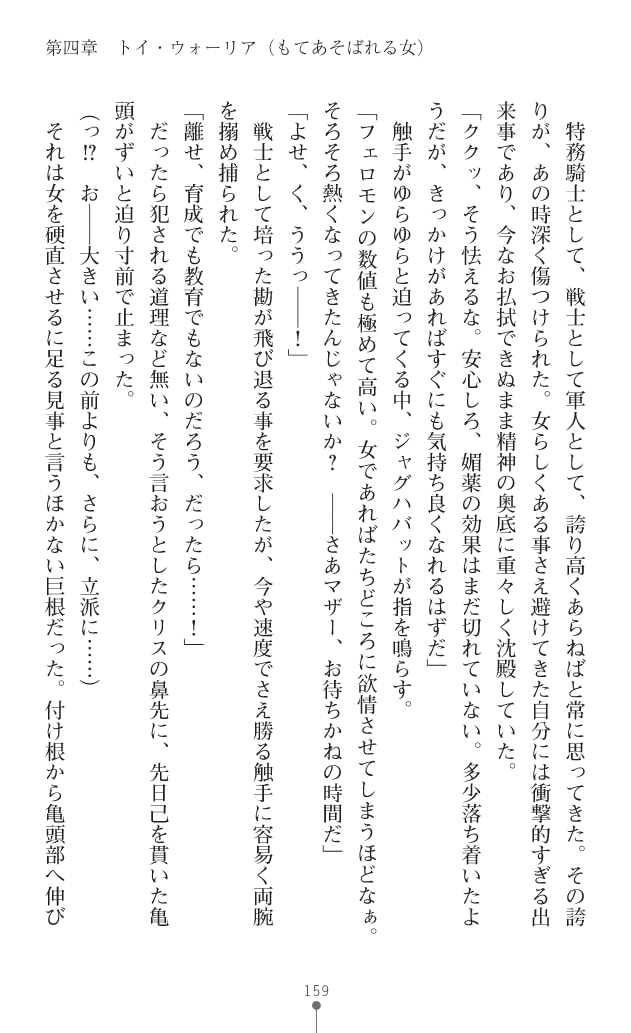 第四章　トイ・ウォーリア（もてあそばれる女）
　特務騎士として、戦士として軍人として、誇り高くあらねばと常に思ってきた。その誇
りが、あの時深く傷つけられた。女らしくある事さえ避けてきた自分には衝撃的すぎる出
来事であり、今なお払拭できぬまま精神の奥底に重々しく沈殿していた。
「ククッ、そう怯えるな。安心しろ、媚薬の効果はまだ切れていない。多少落ち着いたよ
うだが、きっかけがあればすぐにも気持ち良くなれるはずだ」
　触手がゆらゆらと迫ってくる中、ジャグハバットが指を鳴らす。
「フェロモンの数値も極めて高い。女であればたちどころに欲情させてしまうほどなぁ。
そろそろ熱くなってきたんじゃないか？　――さあマザー、お待ちかねの時間だ」
「よせ、く、ううっ――！」
　戦士として培った勘が飛び退る事を要求したが、今や速度でさえ勝る触手に容易く両腕
を搦め捕られた。
「離せ、育成でも教育でもないのだろう、だったら……！」
　だったら犯される道理など無い、そう言おうとしたクリスの鼻先に、先日己を貫いた亀
頭がずいと迫り寸前で止まった。
（っ!?　お――大きい……この前よりも、さらに、立派に……）
　それは女を硬直させるに足る見事と言うほかない巨根だった。付け根から亀頭部へ伸び
159